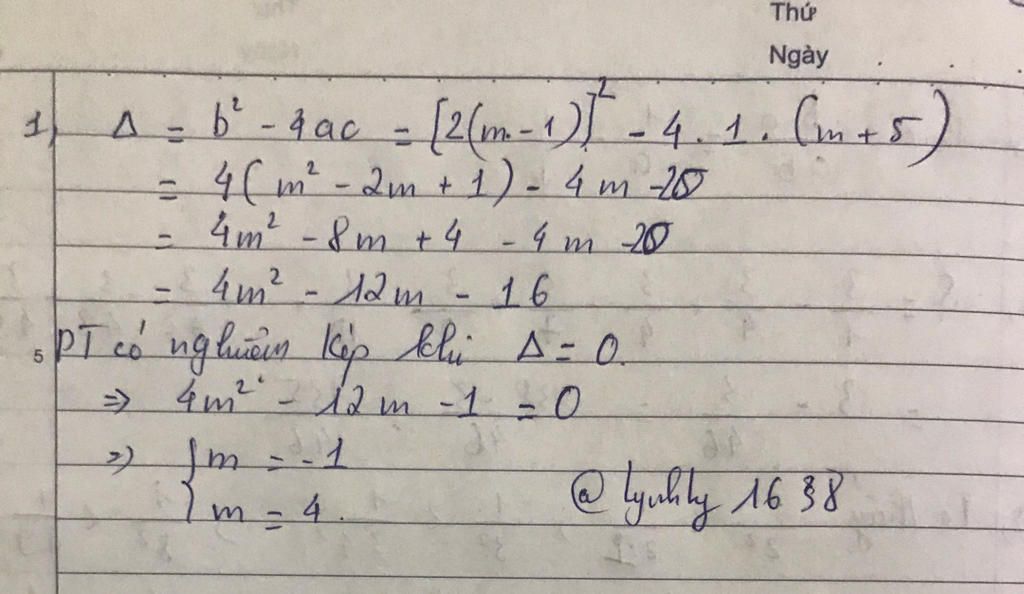 Thứ
Ngày
1) Δ = b² - 4ac = [2(m-1)]² - 4.1.(m+5)
= 4(m² - 2m + 1) - 4m - 20
= 4m² - 8m + 4 - 4m - 20
= 4m² - 12m - 16
5 PT có nghiệm kép khi Δ = 0.
=> 4m² - 12m - 1 = 0
=> { m = -1
m = 4.
@ lynhly 1638